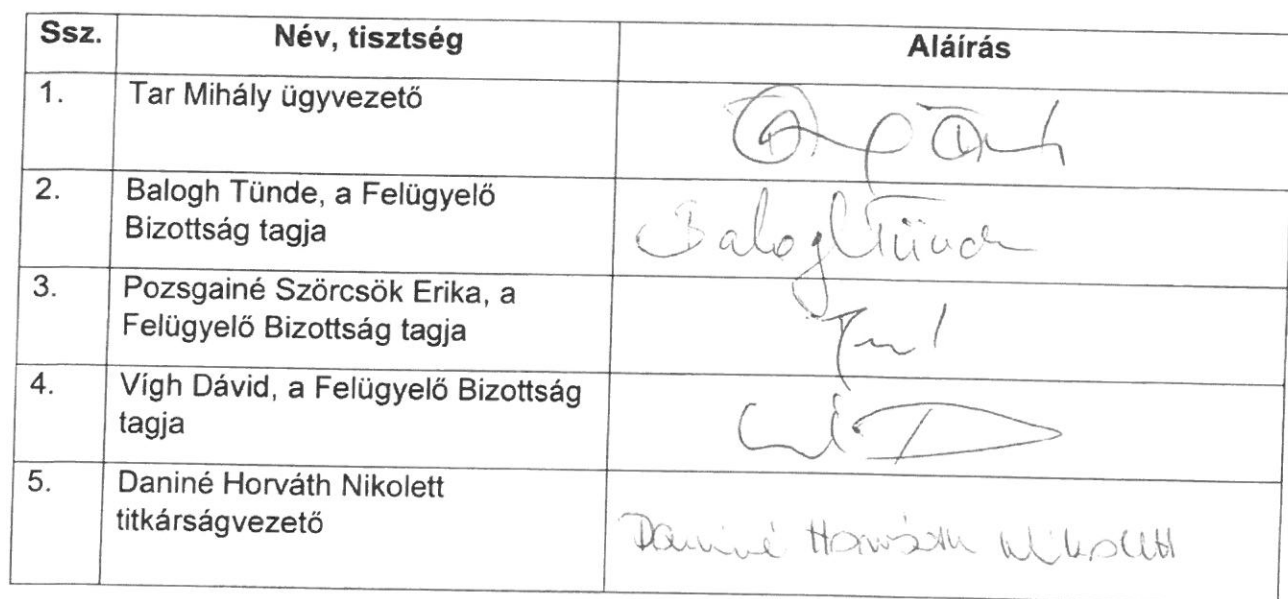 Ssz. Név, tisztség Aláírás
1. Tar Mihály ügyvezető
2. Balogh Tünde, a Felügyelő
Bizottság tagja
Balogh Tünde
3. Pozsgainé Szörcsök Erika, a
Felügyelő Bizottság tagja
4. Vígh Dávid, a Felügyelő Bizottság
tagja
5. Daniné Horváth Nikolett
titkárságvezető
Daniné Horváth Nikolett